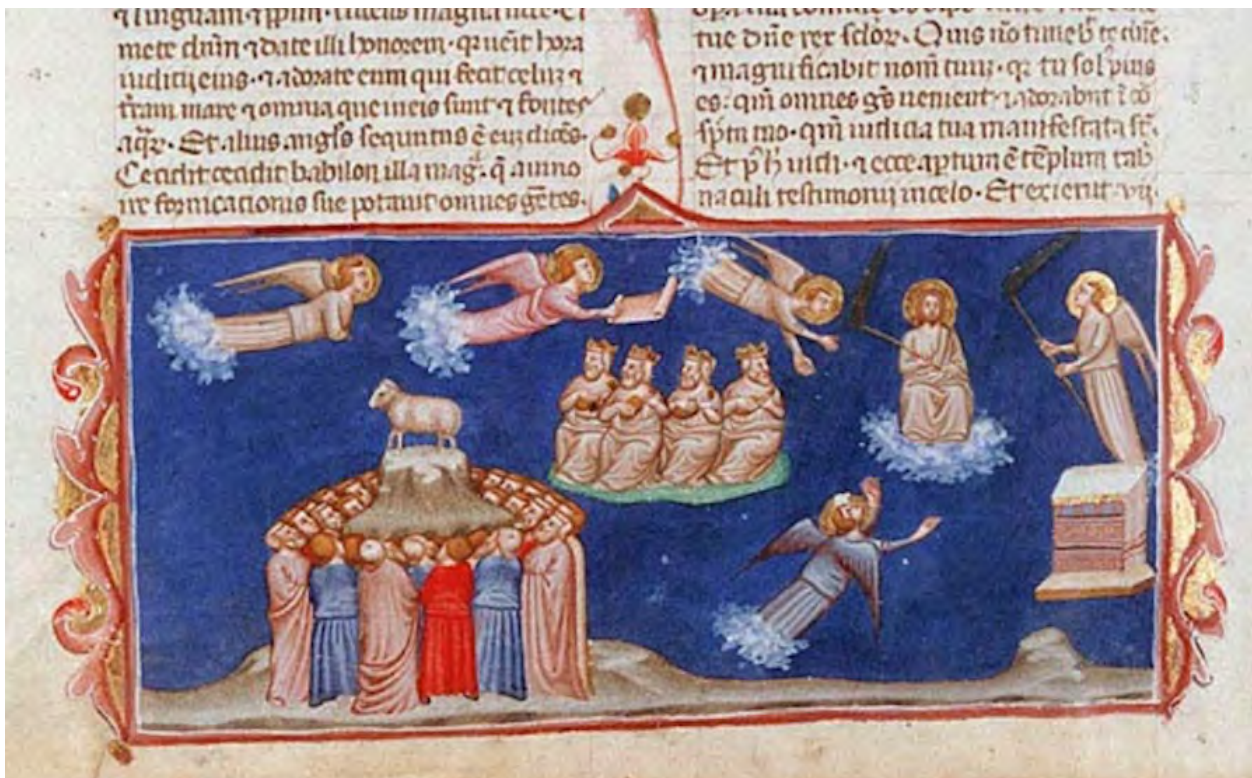 mete dnm ⁊ date illi honorem · qr uenit hora
iudicij eius · ⁊ adorate eum qui fecit celum ⁊
tram mare ⁊ omnia que in eis sunt ⁊ fontes
aqr · Et alius angls secutus e dices ·
Cecidit cecidit babilon illa mag · q a uino
ire fornicationis sue potauit omnes gentes ·
tue dne rex sclor · Quis no timeb te dne ·
⁊ magnificabit nom tuu · qr tu sol pius
es : qm omnes gs uenient ⁊ adorabnt i co
spm tuo · qm iudicia tua manifestata st ·
Et p h uidi · ⁊ ecce aptum e templum tab
naculi testimonij in celo · Et exierut · vij ·